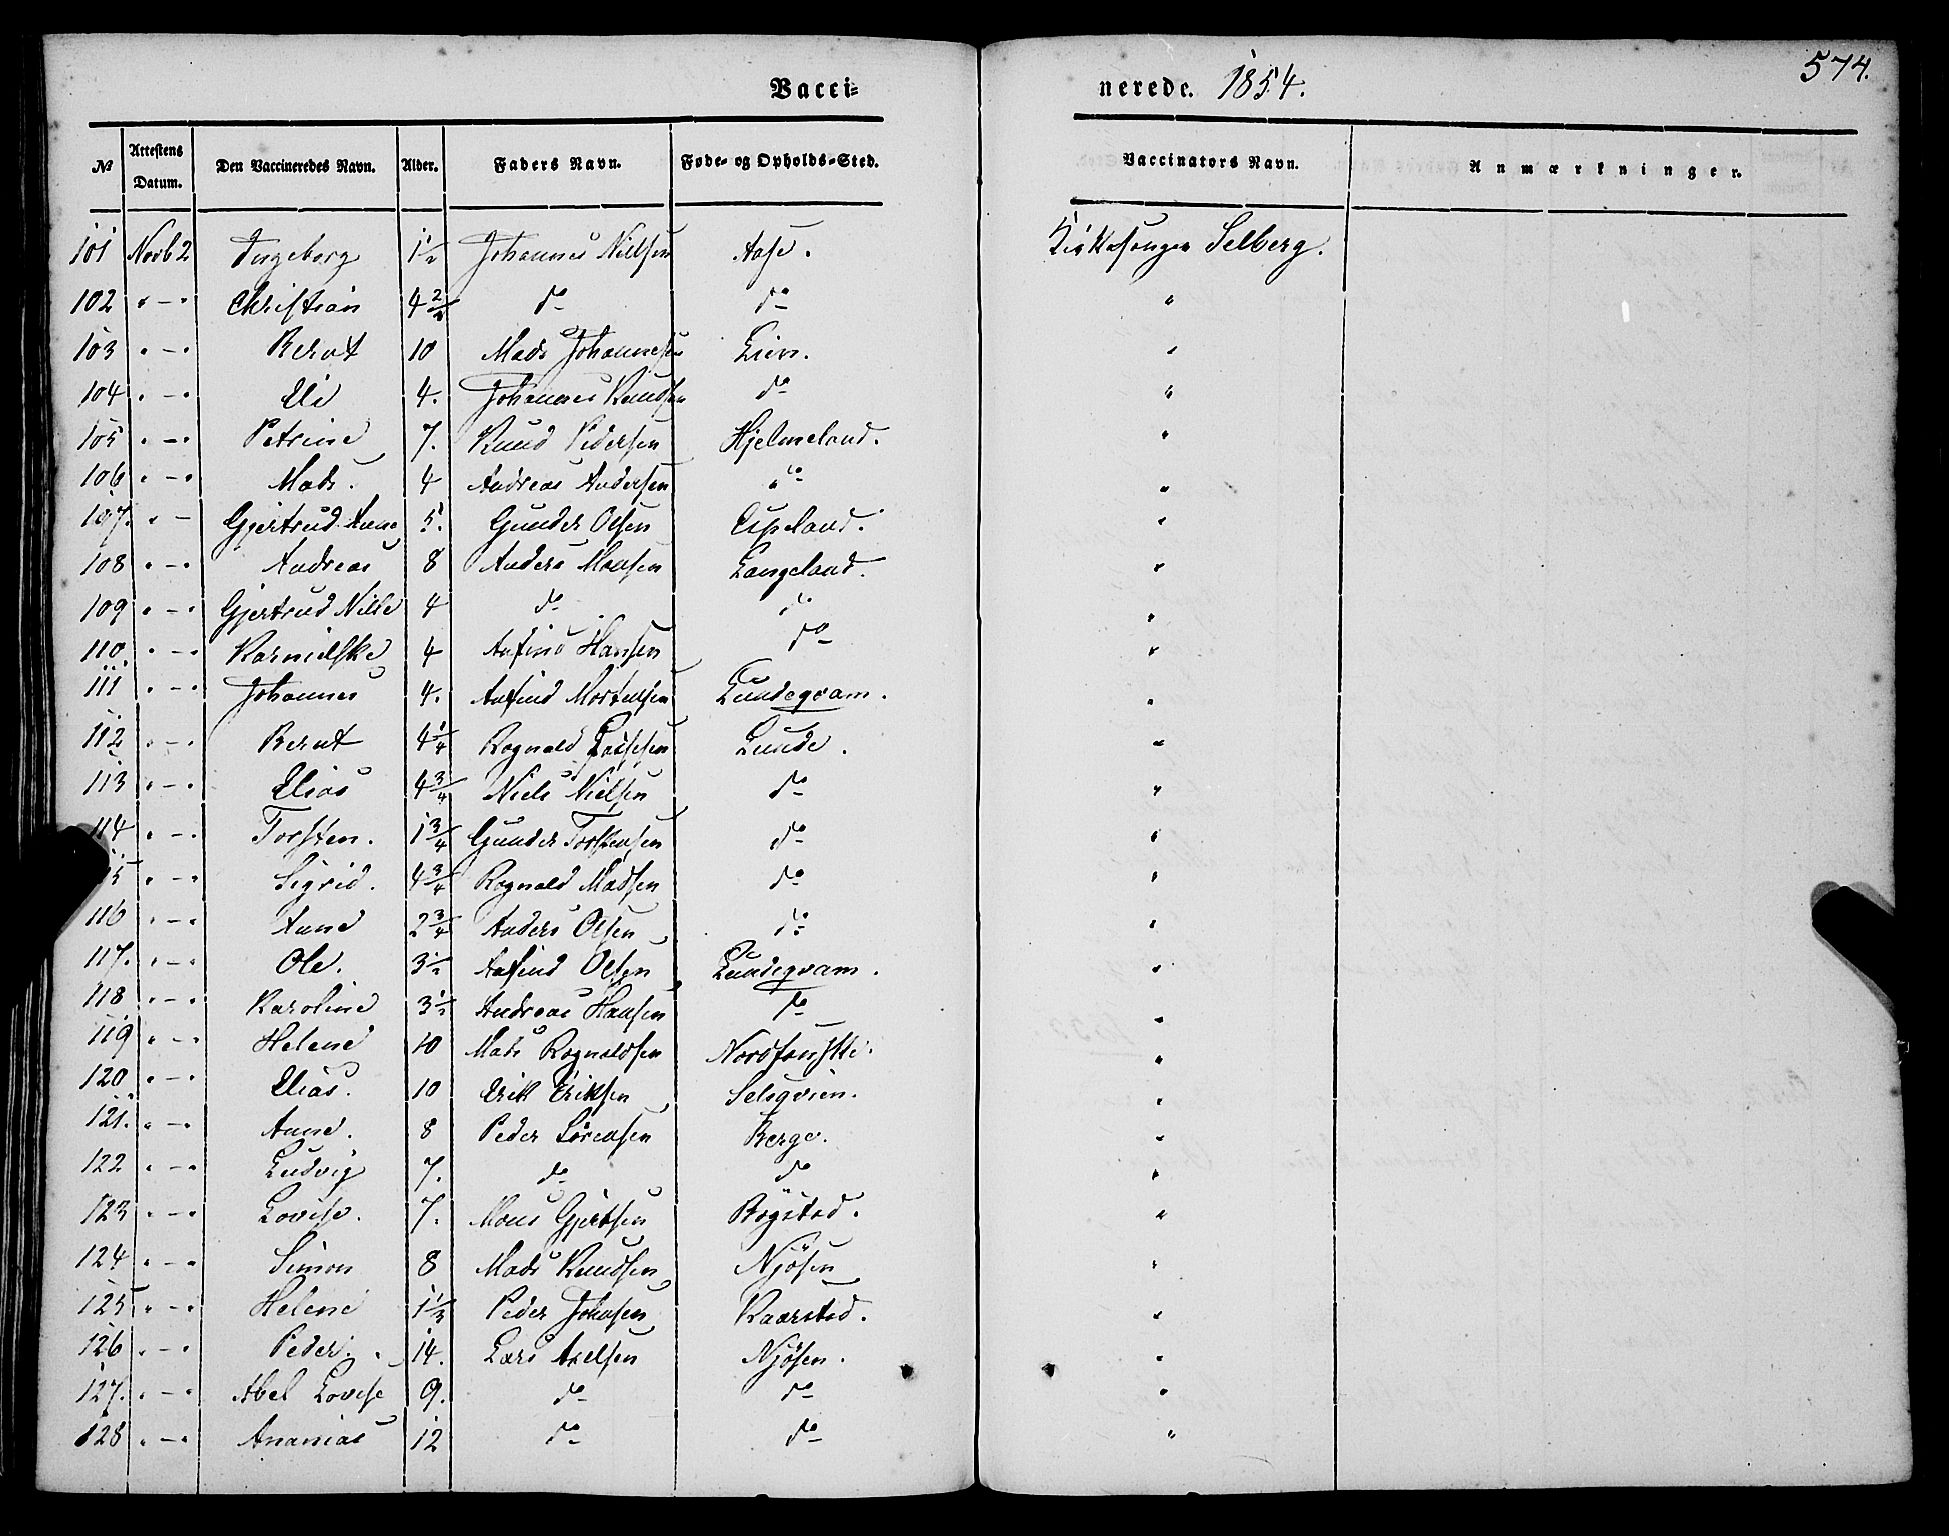 Vacci= nerede. 1854. 574.
No Attestens Datum. Den Vaccineredes Navn. Alder. Faders Navn. Føde- og Opholds-Sted. Vaccinators Navn. Anmærkninger.
101 Novb 2 Ingeborg 1½ Johannes Nielsen Aase. Kirkesanger Selberg.
102 " — " Christian 4 do do "
103 " — " Bernt 10 Mads Johannesen Lien. "
104 " — " Eli 4. Johannes Knudsen do "
105 " — " Petrine 7. Knud Pedersen Hjelmeland. "
106 " — " Mads. 4 Andreas Andersen do "
107. " — Gjertrud Anne 5. Gunder Olsen Espeland. "
108 " — " Andreas 8 Anders Monsen Langeland. "
109 " — " Gjertrud Nille 4 do do "
110. " — " Kornielske 4 Anfind Hansen do "
111 " — " Johannes 4. Anfind Mortensen Lundeqvam. "
112 " — " Bernt 4¼ Rognald Lassesen Lunde. "
113 " — " Elias 4¾ Niels Nielsen do "
114 " — " Torsten. 1¾ Gunder Torstensen do "
15 " — " Sigrid. 4¾ Rognald Madsen do "
116 " — " Anne 2¾ Anders Olsen do "
117. " — " Ole. 3½ Anfind Olsen Lundeqvam. "
118 " — " Karoline 3½ Andreas Hansen do "
119 " — " Helene 10 Mads Rognaldsen "
120 " — " Elias. 10 Erik Eriksen Selsqvien. "
121. " — " Anne. 8 Peder Sørensen Berge. "
122 " — " Ludvig 7. do do "
123 " — " Lovise. 7. Mons Gjertsen Bögstad. "
124 " — " Simon 8 Mads Knudsen Njösen "
125 " — " Helene 1⅓ Peder Johnsen Kaarstad. "
126 " — " Peder. 14. Lars Axelsen Njösen. "
127. " — " Abel Lovise 9. do do "
128 " — " Ananias 12 do do "